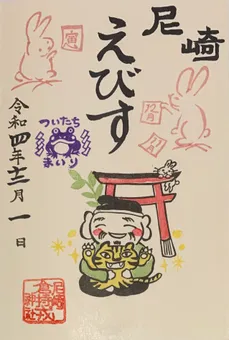 尼崎
えびす
寅
12月
ついたち
まいり
令和四年十二月一日